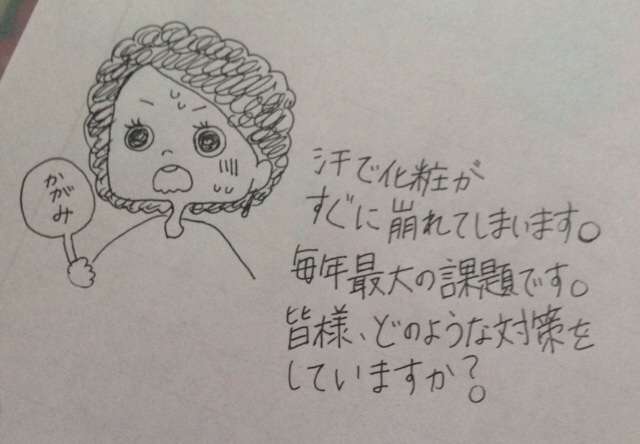 かがみ
汗で化粧が
すぐに崩れてしまいます。
毎年最大の課題です。
皆様、どのような対策を
していますか?